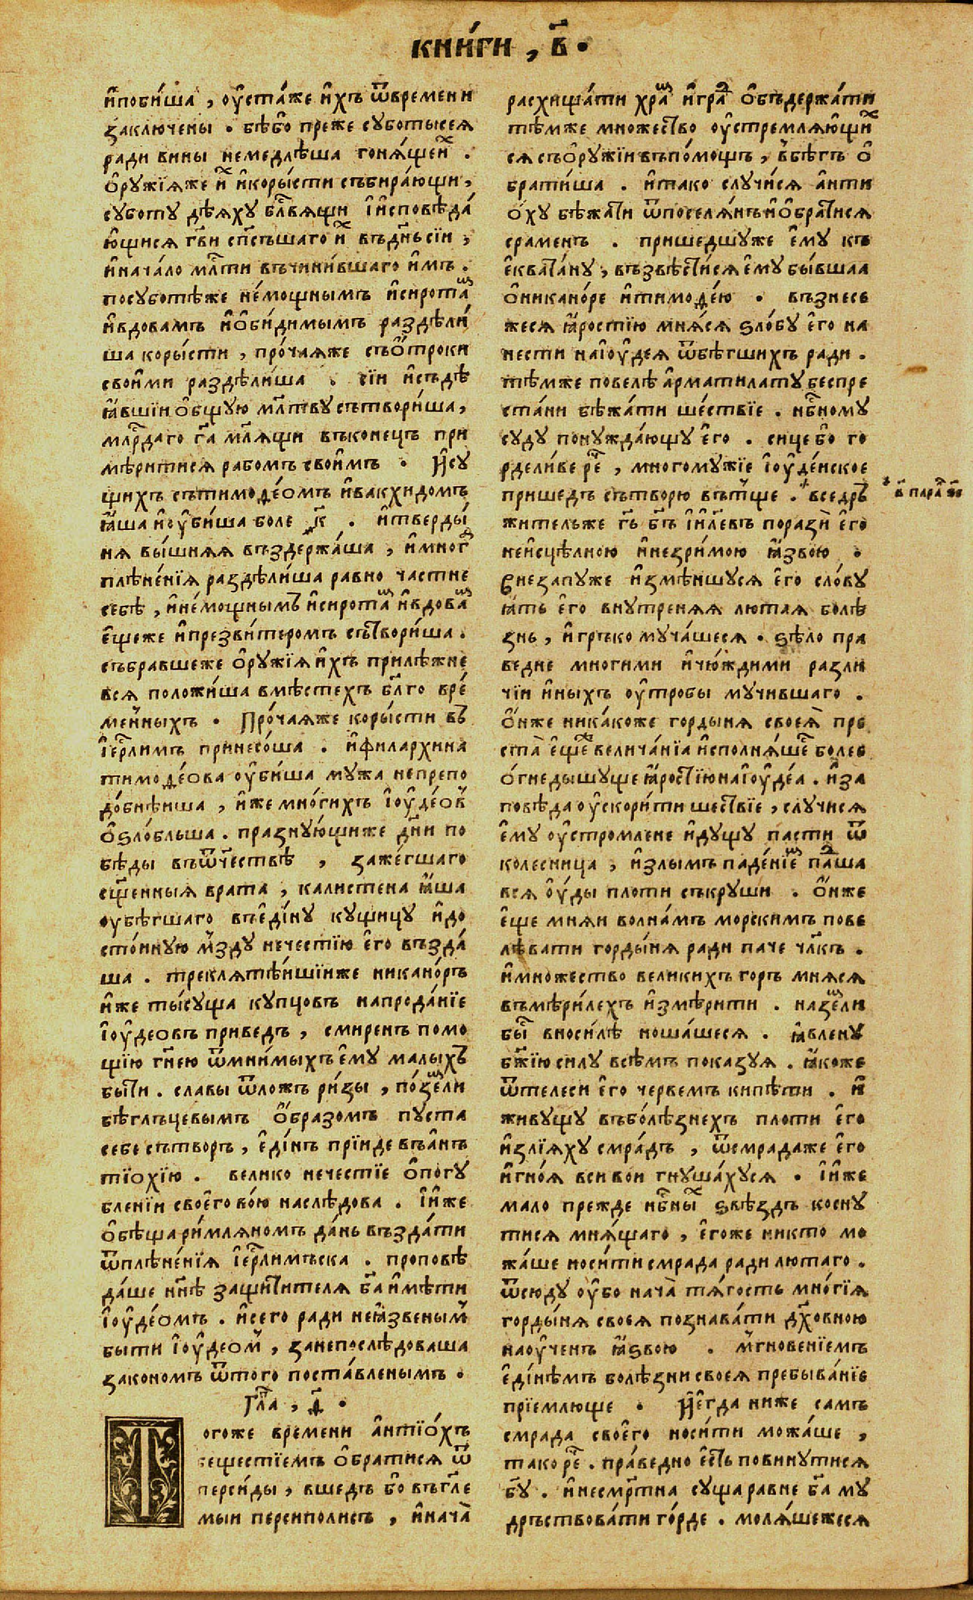 кни́ги , в҃ •
и҆поби́ша , ᲂу҆ста́же и҆́хъ ѿвремени
заключени . бѣбо̀ преже суботысея
ради вины немедлѣша гоня́щеи҆х .
О҆ружїяже и҆х и҆коры́сти събира́ющи ,
суботу дѣяху бл҃гвящи и҆и҆сповѣда́
ющися гв҃и сп҃съшаго и҆х въдн҃ьсїи ,
и҆нача́ло мл҃ти въчини́вшаго и҆мъ .
посуботѣже не́мощнымъ и҆сирота́м
и҆вдовамъ и҆о҆би́димымъ раздѣли́
ша корысти , про́чаяже съо҆́троки
свои́ми раздѣли́ша . сїи и҆съдѣ
ꙗ҆вшїи о҆бщую мл҃тву сътвори́ша ,
млр҃даго гд҃а мл҃ящи въконецъ при
мѣритися рабомъ свои́мъ . И҆су
щихъ сътимоѳе́омъ и҆вакхидомъ
ꙗ҆ша и҆ᲂу҆би́ша боле к҃ . и҆тверды́
ня вы́шняя въздержа́ша , и҆мног
плѣне́нїя раздѣли́ша равно частие
себѣ , и҆не́мощнымъ и҆сирота́м и҆вдова́м
е҆щеже и҆презви́теромъ сътвори́ша .
събравшеже о҆ружїя и҆́хъ прилѣжне
вся положи́ша вмѣстехъ бл҃го вре́
ме́нныхъ . Про́чаяже коры́сти въ
і҆ерл҃имъ принесо́ша . и҆филархина
тимоѳе́ова ᲂу҆би́ша мужа непрепо
до́бнѣиша , и҆́же мно́гихъ і҆ᲂу҆де́ѡв
о҆ѕло́бльша . празную́щиже дн҃и по
бѣ́ды въѿч҃ествѣ , заже́гшаго
сщ҃енныя врата , калистена ꙗ҆́ша
ᲂубѣ́гшаго въе҆ди́ну кущицу и҆до
сто́иную мз҃ду нечестїю е҆го възда́
ша . треклятѣ́ишїиже никано́ръ
и҆же ты́суща купцовъ напрода́нїе
і҆ᲂу҆дѐовъ приведъ , смиренъ помо
щїю гн҃ею ѿмни́мыхъ е҆му малыхъ
быти . славы ѿложъ ри́зы , по́зем́ли
бѣглъцевымъ о҆́бразомъ пуста
себе сътворъ , е҆ди́нъ прїиде въа҆нъ
тїохїю . велико нечестїе о҆погу
бленїи своего во́ю наслѣдова . и҆и҆же
о҆бѣща ри́мляномъ да́нь възда́ти
ѿплѣне́нїя і҆ерл҃имъска . проповѣ
да́ше нн҃ѣ защитителя бг҃а и҆мѣти
і҆ᲂу҆де́омъ . и҆сего ради неꙗ҆звеным
быти і҆ᲂу҆дѐом , занепослѣдоваша
закономъ ѿтого поста́вленымъ .
Гла҃ , ѳ҃ •
Тогоже времени а҆нтїо́хъ
бещестїемъ о҆братися ѿ
перси́ды , вшедъ бо въгл҃е
мыи персиполисъ , и҆нача̀
расхища́ти хра́м и҆гра́д о҆бъдержа́ти
тѣ́мже множество ᲂу҆стремляющи́х
ся съо҆ру́жїи въпо́мощь , в̾бѣгъ о҆
брати́ша . и҆тако случи́ся а҆нти
о́ху бѣжати ѿпоселя́нъ и҆о҆братися
сраменъ . пришедшуже е҆му къ
е҆квата́ну , възвѣсти́ся е҆му бы́вшаа
о҆никано́ре и҆тимоѳе́ю . възнесе
жеся ꙗ҆ростїю мня́ся ѕло́бу е҆го на
нести наі҆ᲂу҆дея ѿбѣгшихъ ради .
тѣ́мже повелѣ а҆рматилату беспре
ста́ни бѣжа́ти ше́ствїе . нб҃ному
суду пону́жда́ющу е҆го . сице бо̀ го
рделиве реч҃ , многомужїе і҆ᲂу҆де́нское
пришедъ сътворю въ тъще . * вседръ
жительже гд҃ь бг҃ъ і҆и҃левъ порази̂ е҆го
неи҆сцѣлною и҆незри́мою ꙗ҆звою .
Е҆незапуже и҆змѣншуся е҆го сло́ву
ꙗ҆ть е҆го внутреняя лютая болѣ
знь , и҆гръко муча́шеся . ѕѣло пра
ведне многими и҆чю́ждими разли
чїи и҆ныхъ ᲂу҆тробы мучившаго .
О҆́иже ника́коже гордыня своея̀ пре
ста̀ е҆щ́е велича́нїа и҆сполня́ше болев
о҆гнедышуще ꙗ҆ростїю наі҆ᲂу҆де́а . и҆за
повѣда ᲂу҆скори́ти шествїе , случися
е҆му ᲂу҆стромлене и҆дущу пасти ѿ
колесница , и҆злымъ паде́нїем па́дша
вся ᲂу҆́ды плоти съкруши . О҆́нже
е҆ще мняи волна́мъ мо́рскимъ пове
лѣвати горды́ня ради паче чл҃къ .
и҆множество великихъ горъ мняся
въмѣри́лехъ и҆змѣ́рити . назем́ли
бы вноси́лѣ ноша́шеся . ꙗ҆влену
бж҃їю силу всѣ́мъ показуя . ꙗ҆коже
ѿтелеси е҆го червемъ кипѣти . и҆
живущу въбо́лѣзнехъ плоти е҆го
и҆злїяху смра́дъ , ѿсмрадаже е҆го
и҆гно́я вси вои гнуша́хуся . и҆и҆же
мало прежде нб҃ных ѕвѣздъ косну
тися мня́щаго , е҆гоже никто мо
жа́ше носи́ти смрада ради лютаго .
ѿсюду ᲂу҆бо нача̀ тя́гость мно́гїя
горды́ня своея познава́ти дх҃овною
наᲂу҆ченъ ꙗ҆́ѕвою . мг҃новенїемъ
е҆ди́нѣмъ болѣзни своея пребыва́нїе
прїемлюще . Не҆гда ниже самъ
смрада свое҆го носи́ти можа́ше ,
тако реч҃ . пра́ведно е҆сть повинутися
бг҃у . и҆несмр҃тна суща равне бг҃а му
дръствова́ти го́рде . моля́шежеся
* в҃ пара